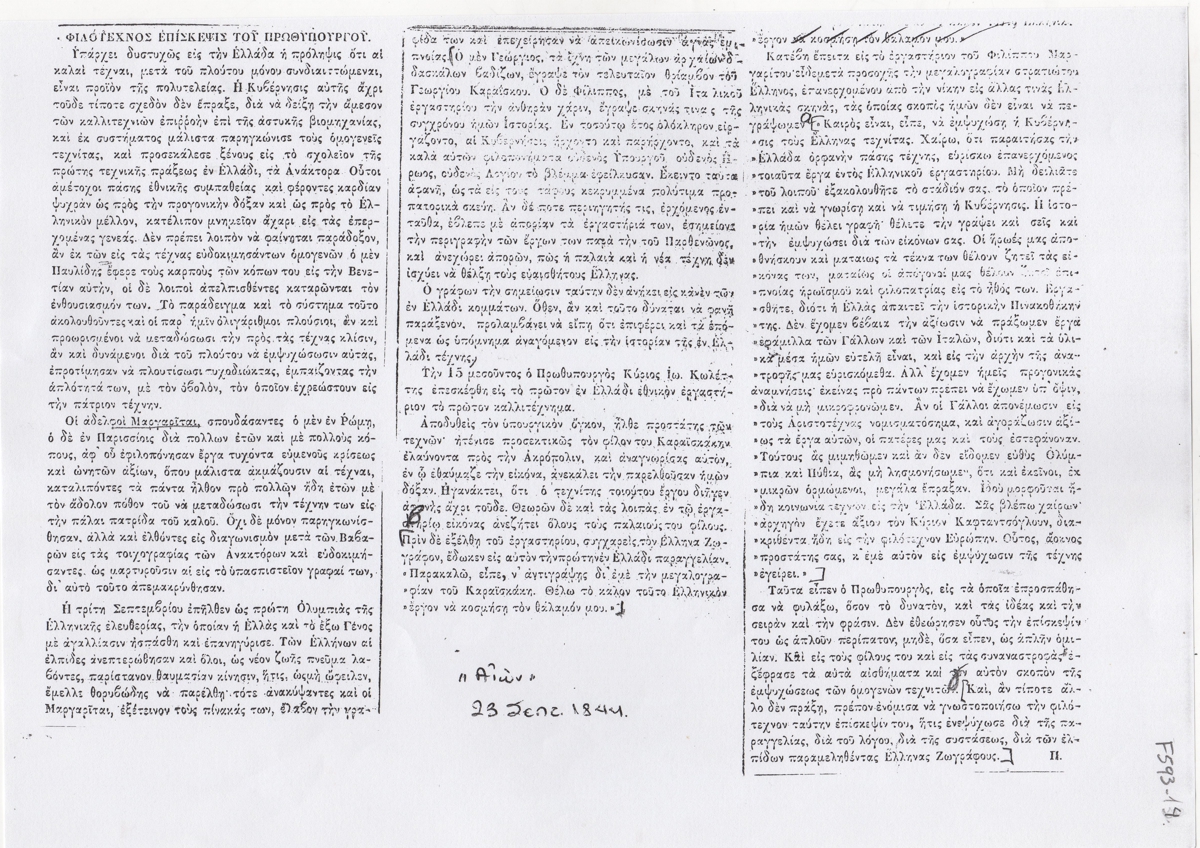 ΦΙΛΟΤΕΧΝΟΣ ΕΠΙΣΚΕΨΙΣ ΤΟΥ ΠΡΩΘΥΠΟΥΡΓΟΥ.
Ὑπάρχει δυστυχῶς εἰς τὴν Ἑλλάδα ἡ πρόληψις ὅτι αἱ
καλαὶ τέχναι, μετὰ τοῦ πλούτου μόνου συνδιαιττώμεναι,
εἶναι προϊὸν τῆς πολυτελείας. Ἡ Κυβέρνησις αὐτῆς ἄχρι
τοῦδε τίποτε σχεδὸν δὲν ἔπραξε, διὰ νὰ δείξῃ τὴν ἄμεσον
τῶν καλλιτεχνιῶν ἐπιῤῥοὴν ἐπὶ τῆς ἀστυκῆς βιομηχανίας,
καὶ ἐκ συστήματος μάλιστα παρηγκώνισε τοὺς ὁμογενεῖς
τεχνίτας, καὶ προσεκάλεσε ξένους εἰς τὸ σχολεῖον τῆς
πρώτης τεχνικῆς πράξεως ἐν Ἑλλάδι, τὰ Ἀνάκτορα. Οὗτοι
ἀμέτοχοι πάσης ἐθνικῆς συμπαθείας καὶ φέροντες καρδίαν
ψυχρὰν ὡς πρὸς τὴν προγονικὴν δόξαν καὶ ὡς πρὸς τὸ Ἑλ-
ληνικὸν μέλλον, κατέλιπον μνημεῖον ἄχαρι εἰς τὰς ἐπερ-
χομένας γενεάς. Δὲν πρέπει λοιπὸν νὰ φαίνηται παράδοξον,
ἂν ἐκ τῶν εἰς τὰς τέχνας εὐδοκιμησάντων ὁμογενῶν ὁ μὲν
Παυλίδης ἔφερε τοὺς καρποὺς τῶν κόπων του εἰς τὴν Βενε-
τίαν αὐτὴν, οἱ δὲ λοιποὶ ἀπελπισθέντες καταρῶνται τὸν
ἐνθουσιασμόν των. Τὸ παράδειγμα καὶ τὸ σύστημα τοῦτο
ἀκολουθοῦντες καὶ οἱ παρ' ἡμῖν ὀλιγάριθμοι πλούσιοι, ἂν καὶ
προωρισμένοι νὰ μεταδώσωσι τὴν πρὸς τὰς τέχνας κλίσιν,
ἂν καὶ δυνάμενοι διὰ τοῦ πλούτου νὰ ἐμψυχώσωσιν αὐτὰς,
ἐπροτίμησαν νὰ πλουτίσωσι τυχοδιώκτας, ἐμπαίζοντας τὴν
ἁπλότητά των, μὲ τὸν ὀβολὸν, τὸν ὁποῖον ἐχρεώστουν εἰς
τὴν πάτριον τέχνην.
Οἱ ἀδελφοὶ Μαργαρῖται, σπουδάσαντες ὁ μὲν ἐν Ῥώμῃ,
ὁ δὲ ἐν Παρισσίοις διὰ πολλῶν ἐτῶν καὶ μὲ πολλοὺς κό-
πους, ἀφ' οὗ ἐφιλοπόνησαν ἔργα τυχόντα εὐμενοῦς κρίσεως
καὶ ὠνητῶν ἀξίων, ὅπου μάλιστα ἀκμάζουσιν αἱ τέχναι,
καταλιπόντες τὰ πάντα ἦλθον πρὸ πολλῶν ἤδη ἐτῶν μὲ
τὸν ἄδολον πόθον τοῦ νὰ μεταδώσωσι τὴν τέχνην των εἰς
τὴν πάλαι πατρίδα τοῦ καλοῦ. Ὄχι δὲ μόνον παρηγκωνίσ-
θησαν, ἀλλὰ καὶ ἐλθόντες εἰς διαγωνισμὸν μετὰ τῶν Βαβα-
ρῶν εἰς τὰς τοιχογραφίας τῶν Ἀνακτόρων καὶ εὐδοκιμή-
σαντες, ὡς μαρτυροῦσιν αἱ εἰς τὸ ὑπασπιστεῖον γραφαί των,
δι' αὐτὸ τοῦτο ἀπεμακρύνθησαν.
Ἡ τρίτη Σεπτεμβρίου ἐπῆλθεν ὡς πρώτη Ὀλυμπιὰς τῆς
Ἑλληνικῆς ἐλευθερίας, τὴν ὁποίαν ἡ Ἑλλὰς καὶ τὸ ἔξω Γένος
μὲ ἀγαλλίασιν ἠσπάσθη καὶ ἐπανηγύρισε. Τῶν Ἑλλήνων αἱ
ἐλπίδες ἀνεπτερώθησαν καὶ ὅλοι, ὡς νέον ζωῆς πνεῦμα λα-
βόντες, παρίστανον θαυμασίαν κίνησιν, ἥτις, ὡς μὴ ὤφειλεν,
ἔμελλε θορυβώδης νὰ παρέλθῃ· τότε ἀνακύψαντες καὶ οἱ
Μαργαρῖται, ἐξέτεινον τοὺς πίνακάς των, ἔλαβον τὴν γρα-
φίδα των καὶ ἐπεχείρησαν νὰ ἀπεικονίσωσιν ἁγνὰς ἐμ-
πνοίας. Ὁ μὲν Γεώργιος, τὰ ἴχνη τῶν μεγάλων ἀρχαίων δι-
δασκάλων βαδίζων, ἔγραψε τὸν τελευταῖον θρίαμβον τοῦ
Γεωργίου Καραΐσκου. Ὁ δὲ Φίλιππος, μὲ τοῦ Ἰταλικοῦ
ἐργαστηρίου τὴν ἀνθηρὰν χάριν, ἔγραψε σκηνάς τινας τῆς
συγχρόνου ἡμῶν Ἱστορίας. Ἐν τοσούτῳ ἔτος ὁλόκληρον εἰρ-
γάζοντο, αἱ Κυβερνήσεις ἤρχοντο καὶ παρήρχοντο, καὶ τὰ
καλὰ αὐτῶν φιλοπονήματα οὐδενὸς Ὑπουργοῦ, οὐδενὸς Ἥ-
ρωος, οὐδενὸς Λογίου τὸ βλέμμα ἐφείλκυσαν. Ἔκειντο ταῦτα
ἀφανῆ, ὡς τὰ εἰς τοὺς τάφους κεκρυμμένα πολύτιμα προ-
πατορικὰ σκεύη. Ἂν δέ ποτε περιηγητής τις, ἐρχόμενος ἐν-
ταῦθα, ἔβλεπε μὲ ἀπορίαν τὰ ἐργαστήριά των, ἐσημείου
τὴν περιγραφὴν τῶν ἔργων των παρὰ τὴν τοῦ Παρθενῶνος,
καὶ ἀνεχώρει ἀπορῶν, πῶς ἡ παλαιὰ καὶ ἡ νέα τέχνη δὲν
ἰσχύει νὰ θέλξῃ τοὺς εὐαισθήτους Ἕλληνας.
Ὁ γράφων τὴν σημείωσιν ταύτην δὲν ἀνήκει εἰς κἀνὲν τῶν
ἐν Ἑλλάδι κομμάτων. Ὅθεν, ἂν καὶ τοῦτο δύναται νὰ φανῇ
παράξενον, προλαμβάνει νὰ εἴπῃ ὅτι ἐπιφέρει καὶ τὰ ἑπό-
μενα ὡς ὑπόμνημα ἀναγόμενον εἰς τὴν ἱστορίαν τῆς ἐν Ἑλ-
λάδι τέχνης.
Τὴν 15 μεσοῦντος ὁ Πρωθυπουργὸς Κύριος Ἰω. Κωλέτ-
της ἐπεσκέφθη εἰς τὸ πρῶτον ἐν Ἑλλάδι ἐθνικὸν ἐργαστή-
ριον τὸ πρῶτον καλλιτέχνημα.
Ἀποδυθεὶς τὸν ὑπουργικὸν ὄγκον, ἦλθε προστάτης τῶν
τεχνῶν· ἠτένισε προσεκτικῶς τὸν φίλον του Καραϊσκάκην
ἐλαύνοντα πρὸς τὴν Ἀκρόπολιν, καὶ ἀναγνωρίσας αὐτὸν,
ἐν ᾧ ἐθαύμαζε τὴν εἰκόνα, ἀνεκάλει τὴν παρελθοῦσαν ἡμῶν
δόξαν. Ἠγανάκτει, ὅτι ὁ τεχνίτης τοιούτου ἔργου διῆγεν
ἀφανὴς ἄχρι τοῦδε. Θεωρῶν δὲ καὶ τὰς λοιπὰς ἐν τῷ ἐργα-
στηρίῳ εἰκόνας ἀνεζήτει ὅλους τοὺς παλαιούς του φίλους.
Πρὶν δὲ ἐξέλθῃ τοῦ ἐργαστηρίου, συγχαρεὶς τὸν Ἕλληνα Ζω-
γράφον, ἔδωκεν εἰς αὐτὸν τὴν πρώτην ἐν Ἑλλάδι παραγγελίαν.
»Παρακαλῶ, εἶπε, ν' ἀντιγράψῃς δι' ἐμὲ τὴν μεγαλογρα-
»φίαν τοῦ Καραϊσκάκη. Θέλω τὸ καλὸν τοῦτο Ἑλληνικὸν
»ἔργον νὰ κοσμήσῃ τὸν θάλαμόν μου.»
"Αἰὼν"
23 Σεπτ. 1844.
»ἔργον νὰ κοσμήσῃ τὸν θάλαμόν μου.»
Κατέβη ἔπειτα εἰς τὸ ἐργαστήριον τοῦ Φιλίππου Μαρ-
γαρίτου· εἶδε μετὰ προσοχῆς τὴν μεγαλογραφίαν στρατιώτου
Ἕλληνος, ἐπανερχομένου ἀπὸ τὴν νίκην εἰς ἄλλας τινὰς Ἑλ-
ληνικὰς σκηνὰς, τὰς ὁποίας σκοπὸς ἡμῶν δὲν εἶναι νὰ πε-
ριγράψωμεν. «Καιρὸς εἶναι, εἶπε, νὰ ἐμψυχώσῃ ἡ Κυβέρνη-
»σις τοὺς Ἕλληνας τεχνίτας. Χαίρω, ὅτι παραιτήσας τὴν
»Ἑλλάδα ὀρφανὴν πάσης τέχνης, εὑρίσκω ἐπανερχόμενος
»τοιαῦτα ἔργα ἐντὸς Ἑλληνικοῦ ἐργαστηρίου. Μὴ δειλιᾶτε
»τοῦ λοιποῦ· ἐξακολουθῆτε τὸ στάδιόν σας, τὸ ὁποῖον πρέ-
»πει καὶ νὰ γνωρίσῃ καὶ νὰ τιμήσῃ ἡ Κυβέρνησις. Ἡ ἱστο-
»ρία ἡμῶν θέλει γραφῆ· θέλετε τὴν γράψει καὶ σεῖς καὶ
»τὴν ἐμψυχώσει διὰ τῶν εἰκόνων σας. Οἱ ἥρωές μας ἀπο-
»θνήσκουν καὶ ματαίως τὰ τέκνα των θέλουν ζητεῖ τὰς εἰ-
»κόνας των, ματαίως οἱ ἀπόγονοί μας θέλουν ζητεῖ ἐμ-
»πνοίας ἡρωϊσμοῦ καὶ φιλοπατρίας εἰς τὸ ἦθός των. Ἐργά-
»σθῆτε, διότι ἡ Ἑλλὰς ἀπαιτεῖ τὴν ἱστορικὴν Πινακοθήκην
»της. Δὲν ἔχομεν βέβαια τὴν ἀξίωσιν νὰ πράξωμεν ἔργα
»ἐφάμιλλα τῶν Γάλλων καὶ τῶν Ἰταλῶν, διότι καὶ τὰ ὑλι-
»κὰ μέσα ἡμῶν εὐτελῆ εἶναι, καὶ εἰς τὴν ἀρχὴν τῆς ἀνα-
»τροφῆς μας εὑρισκόμεθα. Ἀλλ' ἔχομεν ἡμεῖς προγονικὰς
ἀναμνήσεις· ἐκείνας πρὸ πάντων πρέπει νὰ ἔχωμεν ὑπ' ὄψιν,
»διὰ νὰ μὴ μικροφρονῶμεν. Ἂν οἱ Γάλλοι ἀπονέμωσιν εἰς
»τοὺς Ἀριστοτέχνας νομισματόσημα, καὶ ἀγοράζωσιν ἀξί-
»ως τὰ ἔργα αὐτῶν, οἱ πατέρες μας καὶ τοὺς ἐστεφάνοναν.
»Τούτους ἂς μιμηθῶμεν καὶ ἂν δὲν εἴδομεν εὐθὺς Ὀλύμ-
»πια καὶ Πύθια, ἂς μὴ λησμονήσωμεν, ὅτι καὶ ἐκεῖνοι, ἐκ
»μικρῶν ὁρμώμενοι, μεγάλα ἔπραξαν. Ἰδοὺ μορφοῦται ἤ-
»δη κοινωνία τεχνῶν εἰς τὴν Ἑλλάδα. Σᾶς βλέπω χαίρων·
»ἀρχηγὸν ἔχετε ἄξιον τὸν Κύριον Καφταντσόγλουν, δια-
»κριθέντα ἤδη εἰς τὴν φιλότεχνον Εὐρώπην. Οὗτος, ἄοκνος
»προστάτης σας, κ' ἐμὲ αὐτὸν εἰς ἐμψύχωσιν τῆς τέχνης
»ἐγείρει.»
Ταῦτα εἶπεν ὁ Πρωθυπουργὸς, εἰς τὰ ὁποῖα ἐπροσπάθη-
σα νὰ φυλάξω, ὅσον τὸ δυνατὸν, καὶ τὰς ἰδέας καὶ τὴν
σειρὰν καὶ τὴν φράσιν. Δὲν ἐθεώρησεν οὗτος τὴν ἐπίσκεψίν
του ὡς ἁπλοῦν περίπατον, μηδὲ, ὅσα εἶπεν, ὡς ἁπλῆν ὁμι-
λίαν. Καὶ εἰς τοὺς φίλους του καὶ εἰς τὰς συναναστροφὰς ἐ-
ξέφρασε τὰ αὐτὰ αἰσθήματα καὶ τὸν αὐτὸν σκοπὸν τῆς
ἐμψυχώσεως τῶν ὁμογενῶν τεχνιτῶν. Καὶ, ἂν τίποτε ἄλ-
λο δὲν πράξῃ, πρέπον ἐνόμισα νὰ γνωστοποιήσω τὴν φιλό-
τεχνον ταύτην ἐπίσκεψίν του, ἥτις ἐνεψύχωσε διὰ τῆς πα-
ραγγελίας, διὰ τοῦ λόγου, διὰ τῆς συστάσεως, διὰ τῶν ἐλ-
πίδων παραμεληθέντας Ἕλληνας Ζωγράφους. Π.
F593-19.